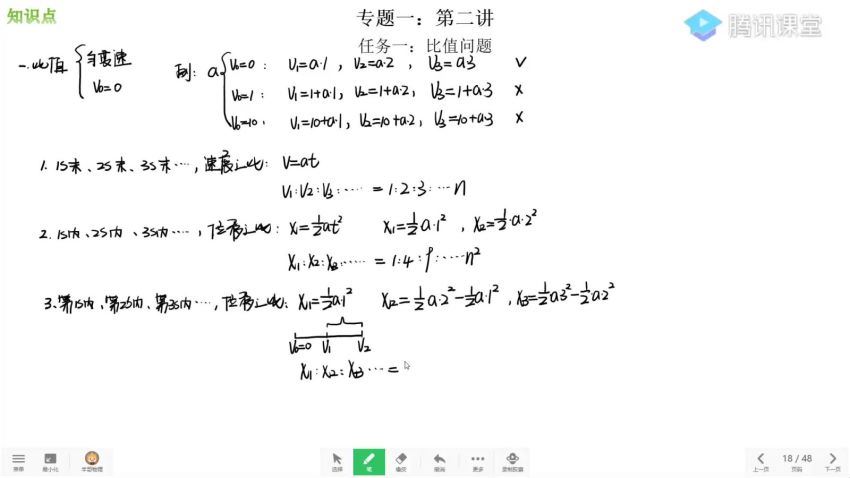 知识点
专题一：第二讲
腾讯课堂
任务一：比值问题
一.比值 { 匀变速 V₀=0
例: a { V₀=0 : V₁=a·1 , V₂=a·2 , V₃=a·3 ✓
V₀=1 : V₁=1+a·1, V₂=1+a·2, V₃=1+a·3 ×
V₀=10 . V₁=10+a·1, V₂=10+a·2, V₃=10+a·3 ×
1. 1S末、2S末、3S末…, 速度之比: V=at
V₁:V₂:V₃:…… =1:2:3:…n
2. 1s内、2s内、3s内…, 位移之比: X=½at² X₁=½a·1² , X₂=½·a·2²
X₁:X₂:X₃:…… =1:4:9:…n²
3.第1s内、第2s内、第3s内…, 位移之比: X₁=½a·1² X₂=½a·2²-½a·1² , X₃=½a3²-½a2²
V₀=0 V₁ V₂
X₁:X₂:X₃…=
菜单 最小化 选择 笔 橡皮 撤消 更多 18 / 48 上一页 页码 下一页